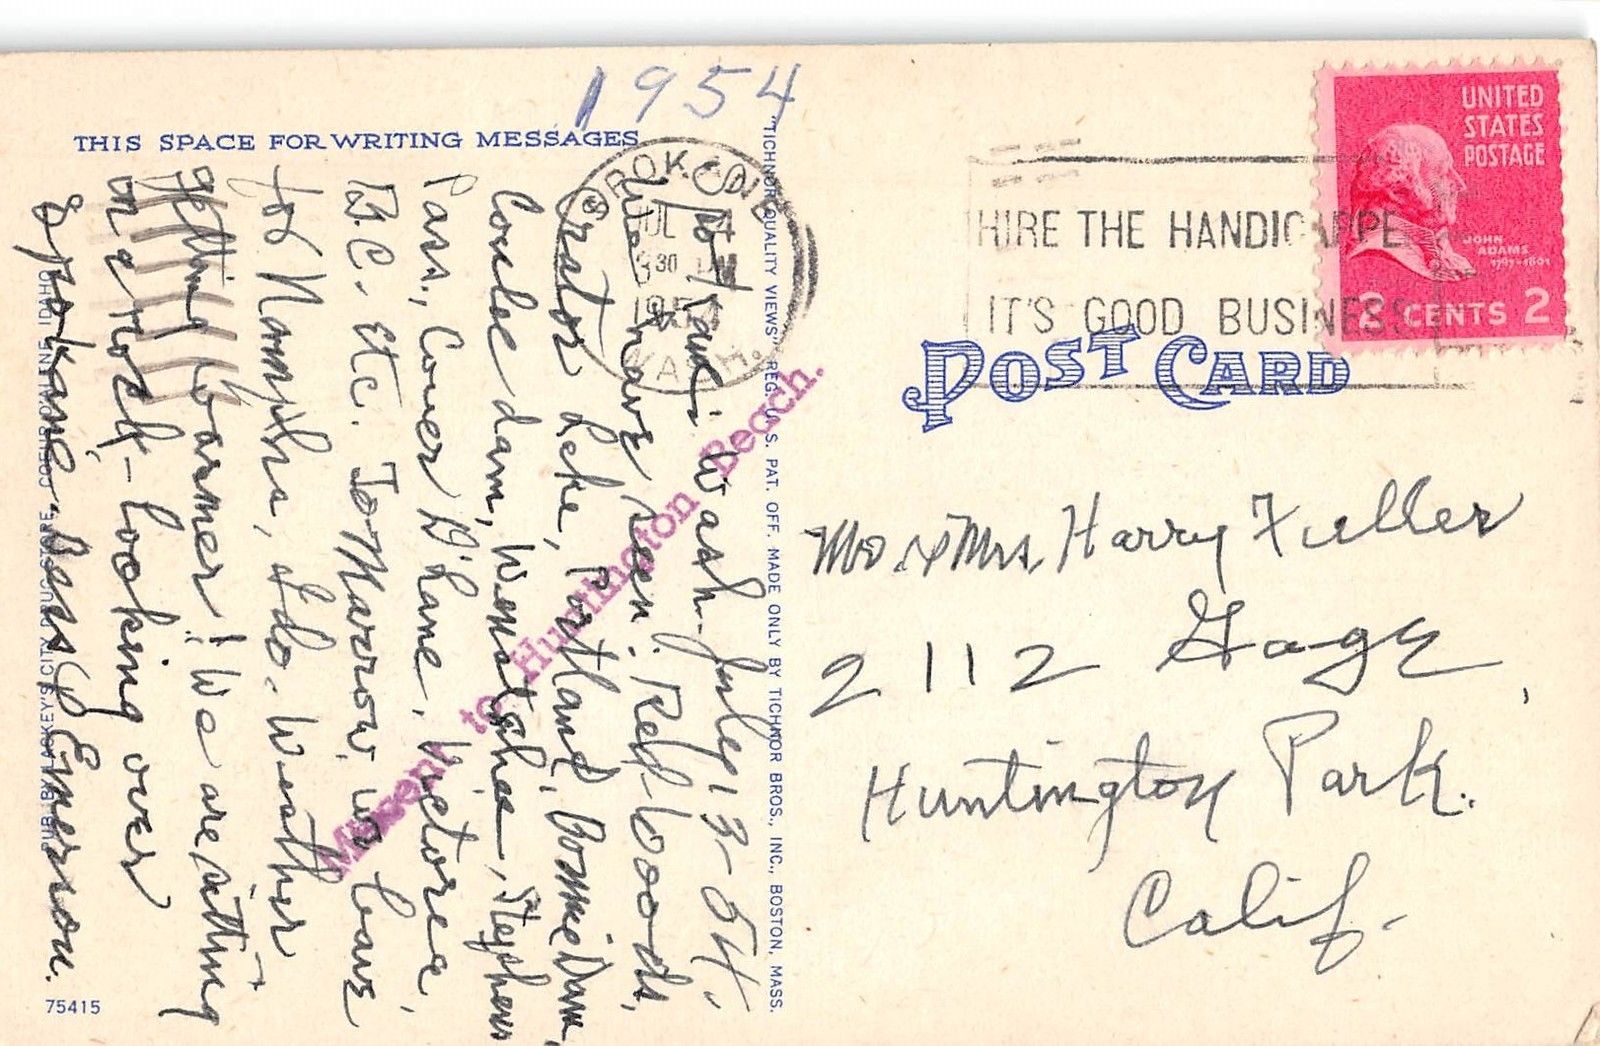 1954
THIS SPACE FOR WRITING MESSAGES
Wash. July 13-54.
We have seen. Red Woods,
Crator Lake, Portland, Bonnie Dam,
Coulee dam, Wenatchee, Stephens
Pass, Couer D'Lane, Victorea,
B.C. Etc. ToMarrow we leave
for Nampha, Ida. Weather
getting warmer! We are sitting
in a rock looking over
Spokane. Bess Emerson.
SPOKANE
JUL
30 PM
1954
WASH.
Missent to Huntington Beach.
"TICHNOR QUALITY VIEWS" REG. U. S. PAT. OFF. MADE ONLY BY TICHNOR BROS., INC., BOSTON, MASS.
PUB. BY LACKEY'S CITY DRUG STORE COEUR D'ALENE, IDAHO
75415
HIRE THE HANDICAPPE
IT'S GOOD BUSINESS
UNITED
STATES
POSTAGE
JOHN
ADAMS
1797-1801
2 CENTS 2
POST CARD
Mr. & Mrs. Harry Fuller
2112 Gage,
Huntington Park.
Calif.